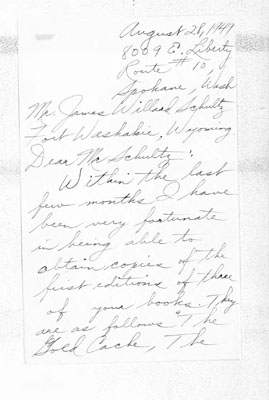 August 28, 1949
8009 E. Liberty
Route #10,
Spokane, Wash
Mr. James Willard Schultz
Fort Washakie, Wyoming
Dear Mr Schultz:
Within the last
few months I have
been very fortunate
in being able to
obtain copies of the
first editions of three
of your books. They
are as follows "The
Gold Cache, The